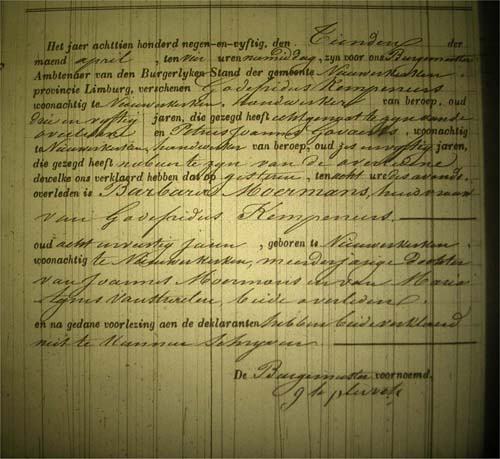 Het jaer achttien honderd negen-en-vyftig, den Tienden der
maend april, ten vier uren namiddag, zyn voor ons Burgemeester
Ambtenaer van den Burgerlyken Stand der gemeente Nieuwerkerken
provincie Limburg, verschenen Godefridus Kempeneers
woonachtig te Nieuwerkerken, handwerker van beroep, oud
drie en vyftig jaren, die gezegd heeft echtgenoot te zyn van de
overledene en Petrus Joannes Govaerts, woonachtig
te Nieuwerkerken, handwerker van beroep, oud zes en vyftig jaren,
die gezegd heeft nabuur te zyn van de overledene
dewelke ons verklaerd hebben dat op gisteren, ten acht ure des avonds
overleden is Barbara Moermans, huisvrouw
van Godefridus Kempeneers.
oud acht en veertig jaren, geboren te Nieuwerkerken
woonachtig te Nieuwerkerken, meerderjarige dochter
van Joannes Moermans en van Maria
Agnes, beide overleden.
en na gedane voorlezing aen de deklaranten hebben beide verklaard
niet te kunnen schryven
De Burgemeester voornoemd.